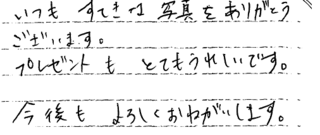 いつも すてきな 写真をありがとう
ございます。
プレゼントも とてもうれしいです。
今後も よろしくおねがいします。